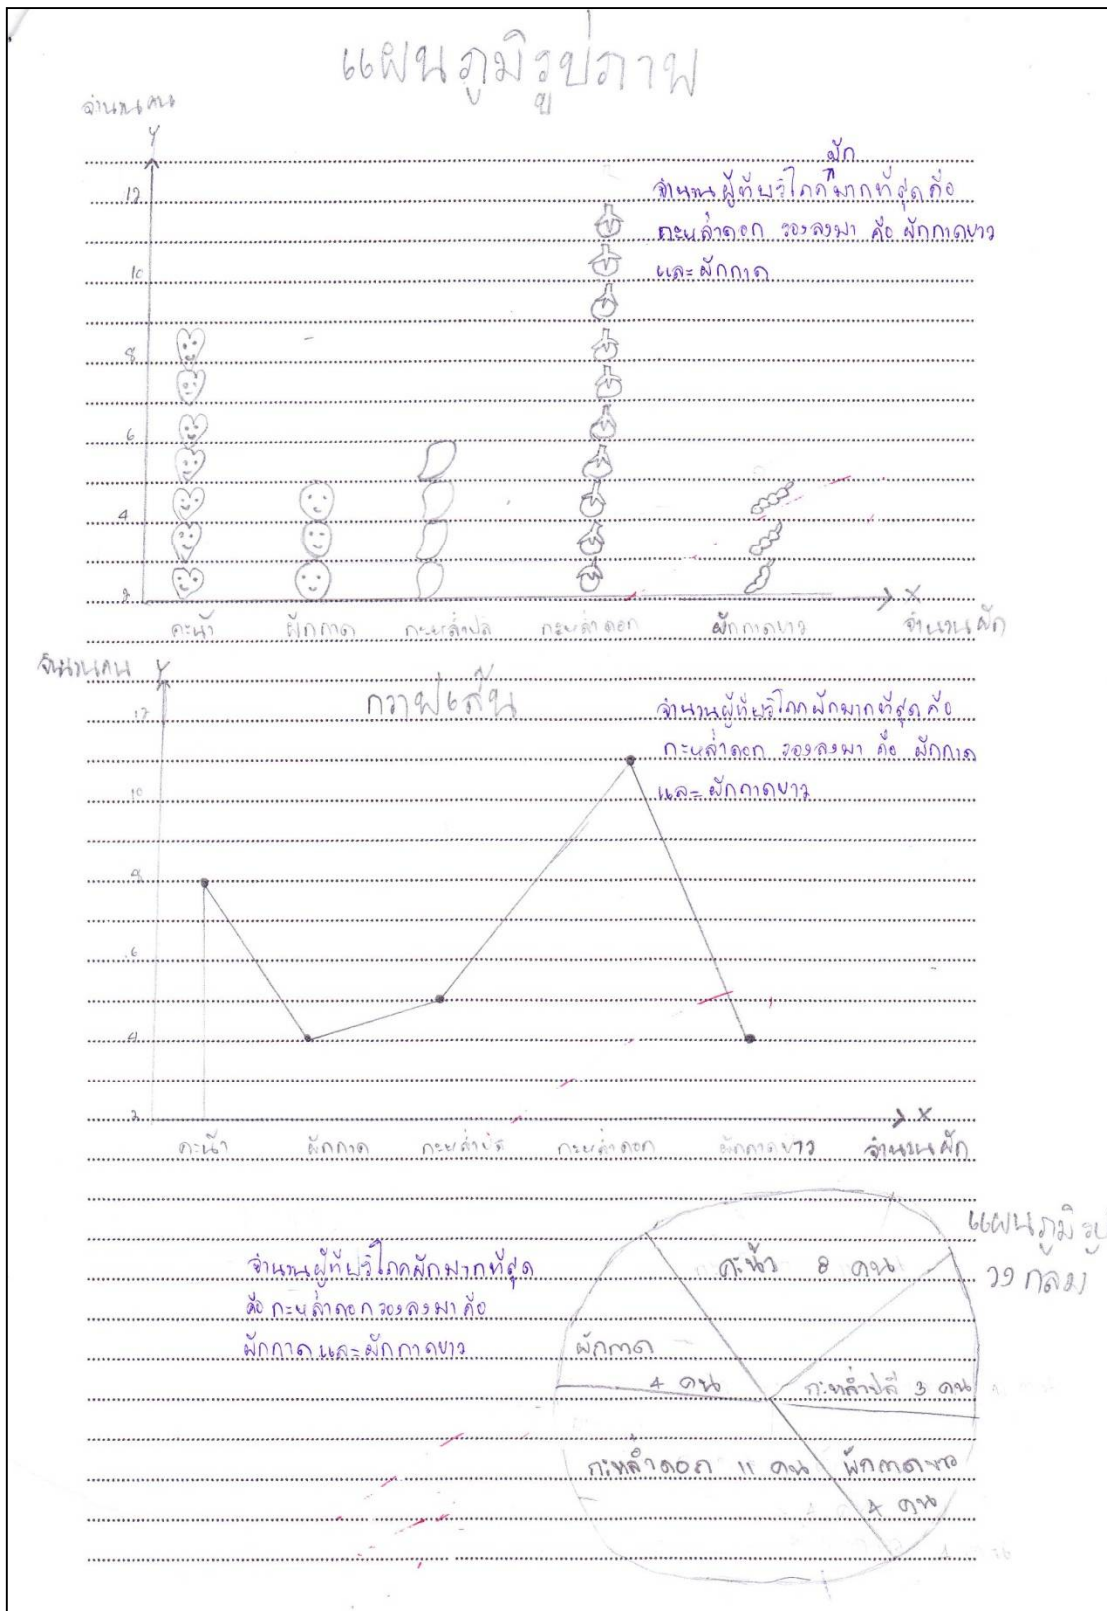 แผนภูมิรูปภาพ
จำนวนคน
Y
12
10
8
6
4
2
ผัก
จำนวนผู้ที่บริโภคมากที่สุดคือ
กะหล่ำดอก รองลงมา คือ ผักกาดขาว
และผักกาด
คะน้า ผักกาด กะหล่ำปลี กะหล่ำดอก ผักกาดขาว
X
จำนวนผัก
จำนวนคน Y
กราฟเส้น
12
10
8
6
4
2
จำนวนผู้ที่บริโภคผักมากที่สุด คือ
กะหล่ำดอก รองลงมา คือ ผักกาด
และผักกาดขาว
X
คะน้า ผักกาด กะหล่ำปลี กะหล่ำดอก ผักกาดขาว จำนวนผัก
แผนภูมิรูป
วงกลม
จำนวนผู้ที่บริโภคผักมากที่สุด
คือ กะหล่ำดอก รองลงมา คือ
ผักกาด และผักกาดขาว
คะน้า 8 คน
ผักกาด
4 คน
กะหล่ำปลี 3 คน
กะหล่ำดอก 11 คน
ผักกาดขาว
4 คน